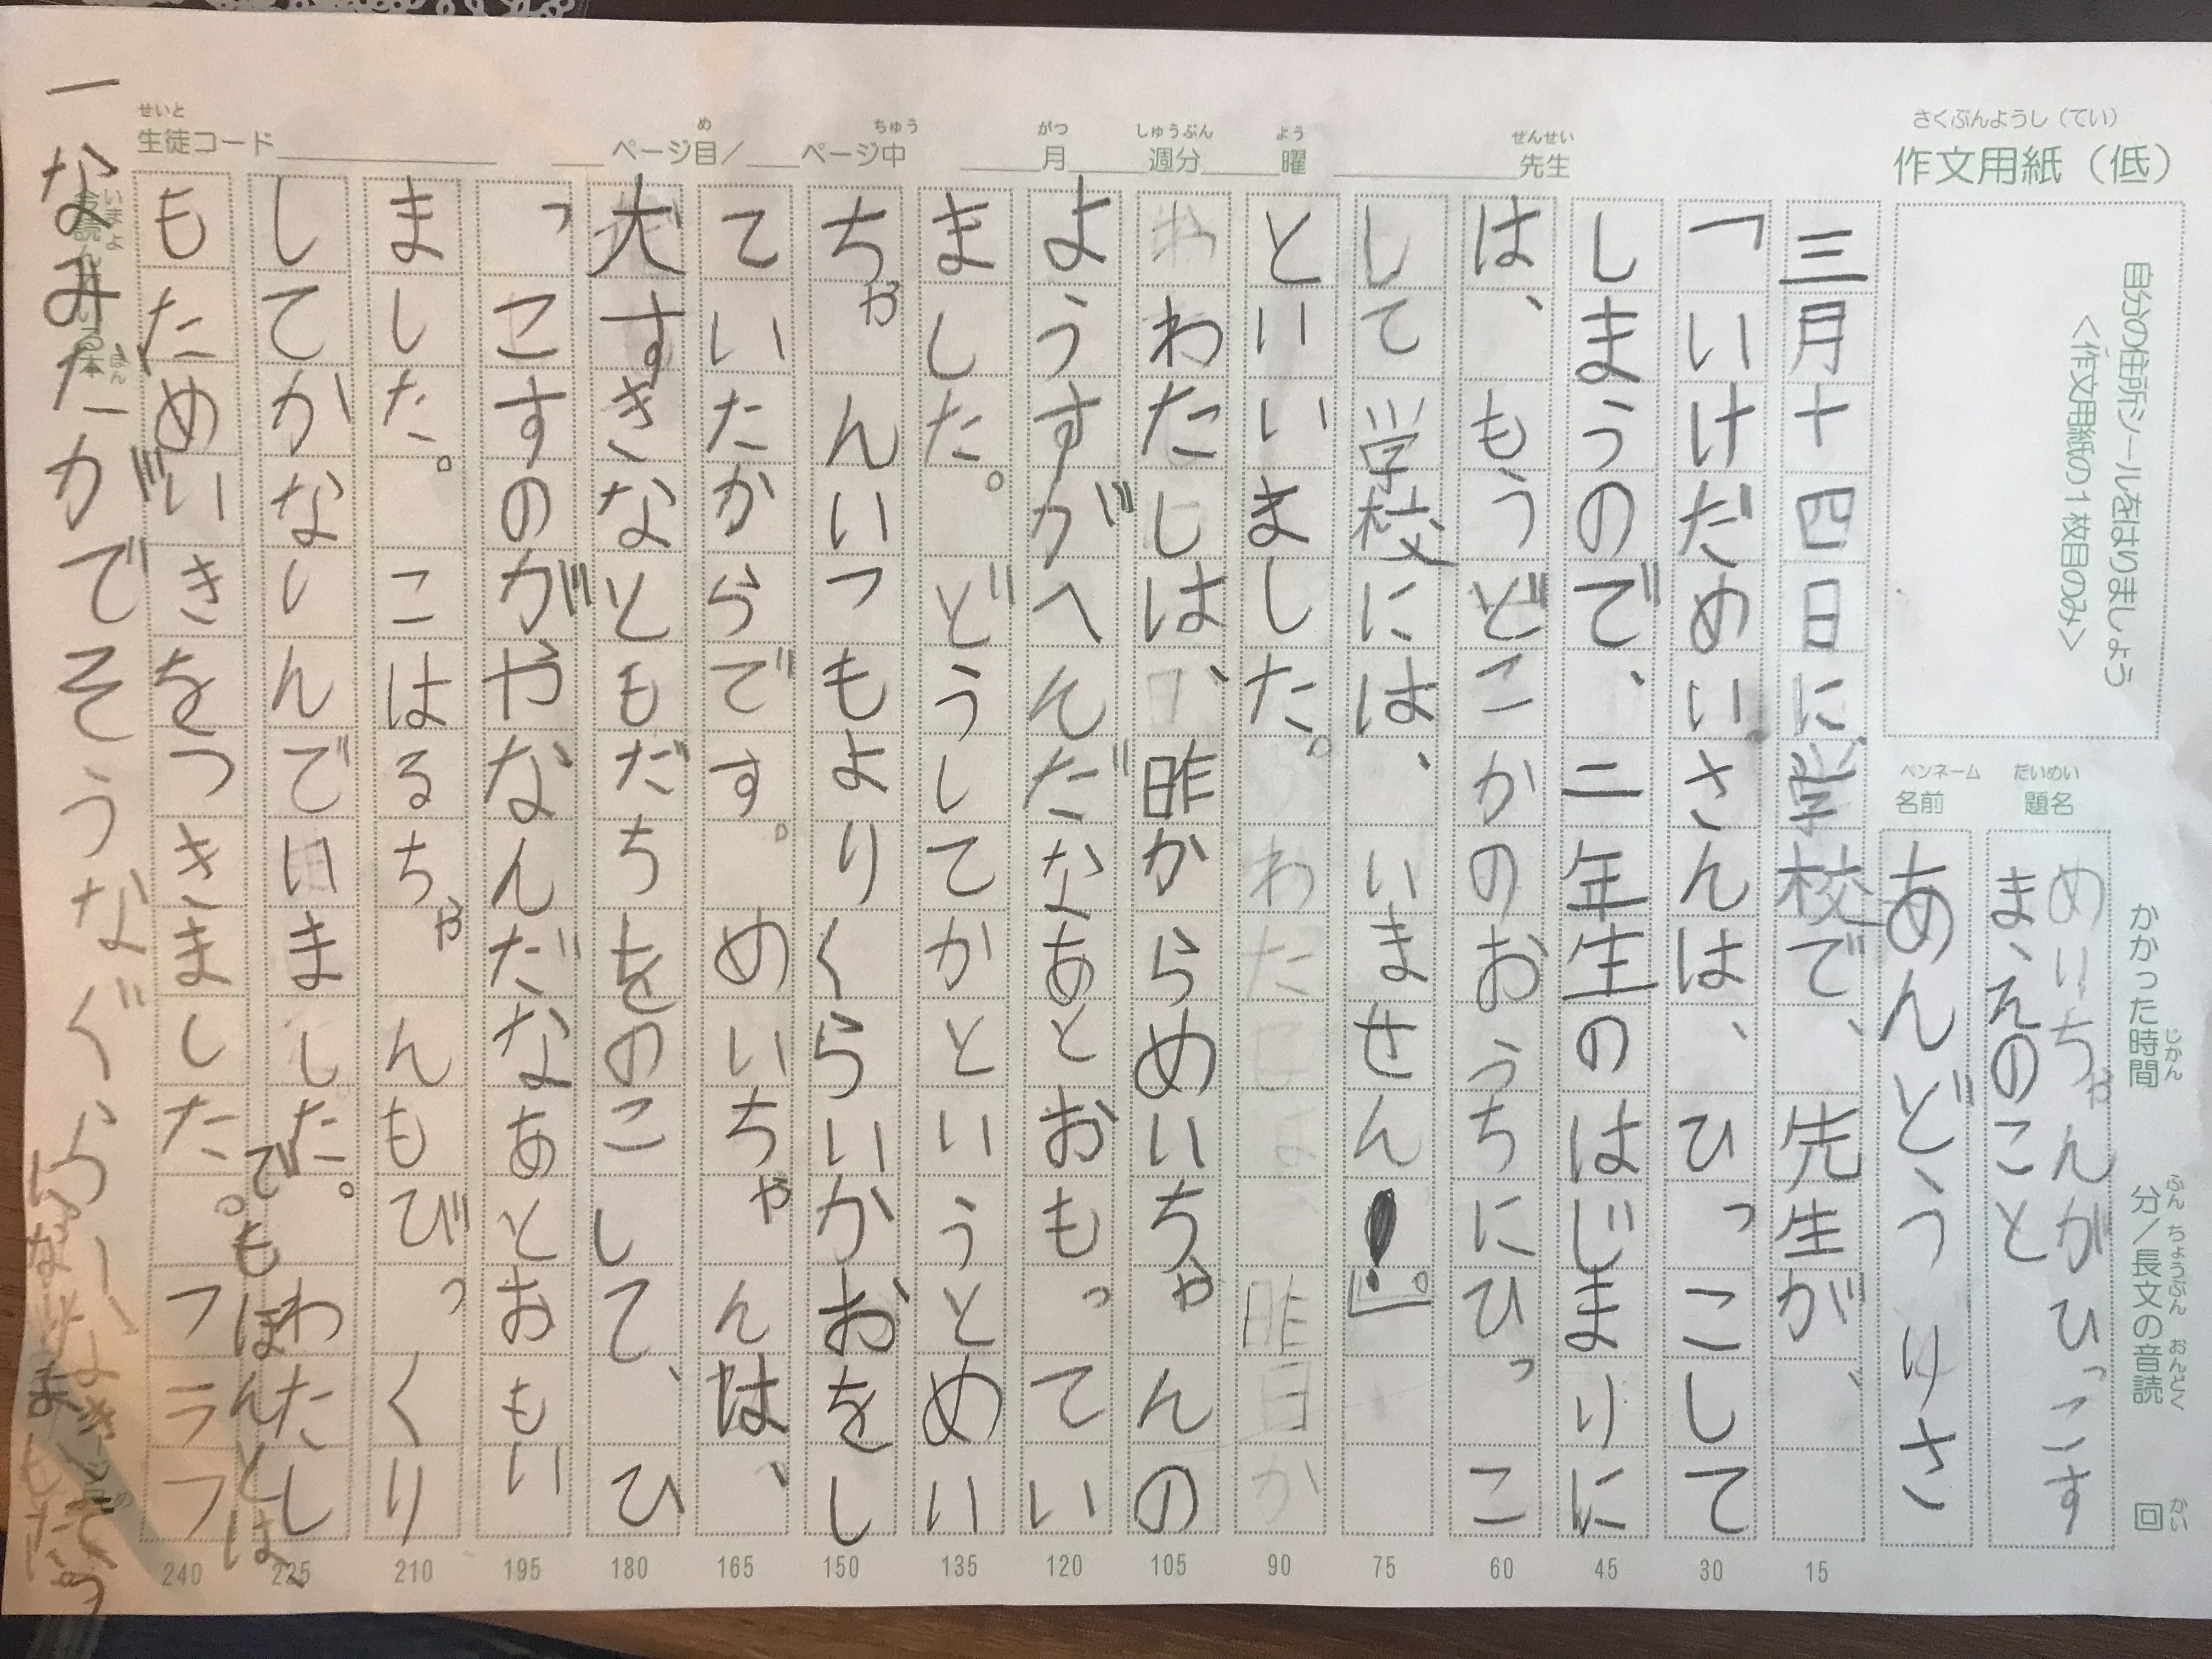 さくぶんようし（てい）
作文用紙（低）
せいと
生徒コード
め ちゅう
ページ目／ ページ中
がつ しゅうぶん よう
月 週分 曜
せんせい
先生
自分の住所シールをはりましょう
＜作文用紙の1枚目のみ＞
じかん
かかった時間
ふん ちょうぶん おんどく かい
分／長文の音読 回
だいめい
題名
めいちゃんがひっこす
まえのこと
ペンネーム
名前
あんどう りさ
三月十四日に学校で、先生が、
「いけだめいさんは、ひっこして
しまうので、二年生のはじまりに
は、もうどこかのおうちにひっこ
して学校には、いません！」。
といいました。
わたしは、昨からめいちゃんの
ようすがへんだなあとおもってい
ました。どうしてかというとめい
ちゃんいつもよりくらいかおをし
ていたからです。めいちゃんは、
大すきなともだちをのこして、ひ
っこすのがやなんだなあとおもい
ました。こはるちゃんもびっくり
してかなしんでいました。わたし
でもほんとは、
もためいきをつきました。フラフ
ーなみだがでそうなぐらい
15
30
45
60
75
90
105
120
135
150
165
180
195
210
225
240